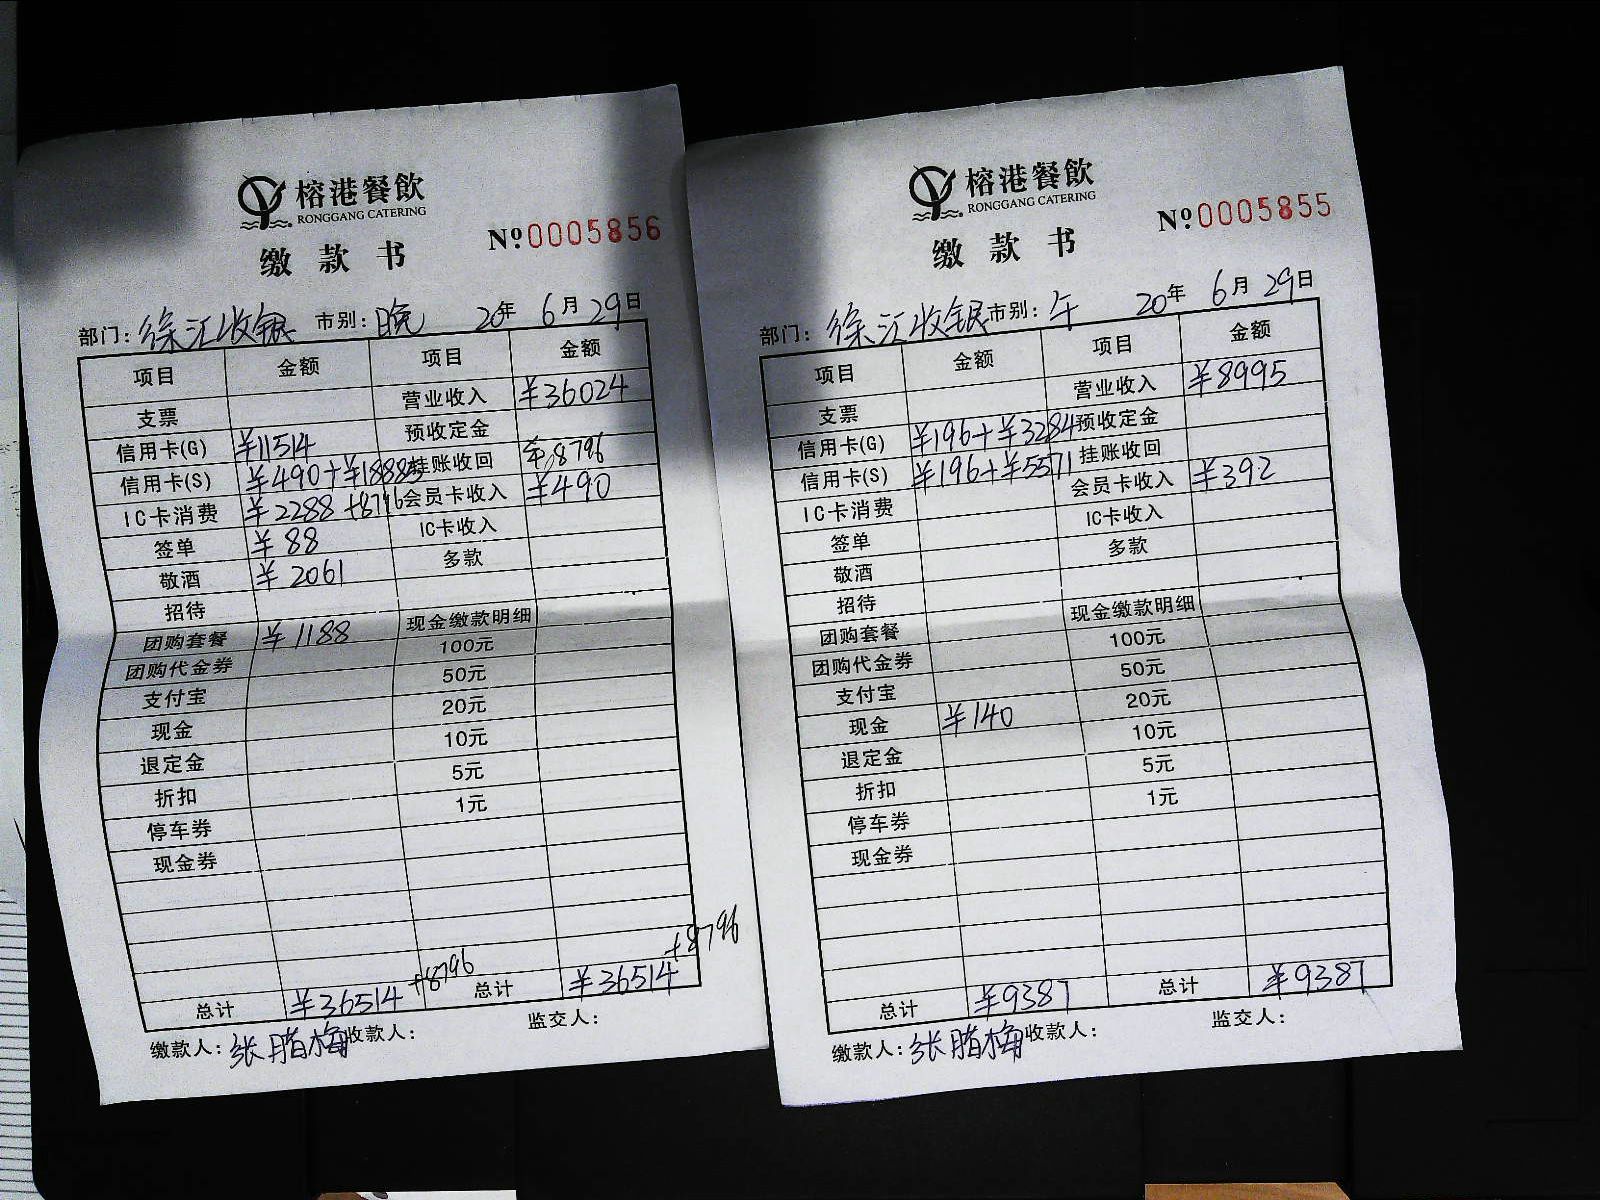 榕港餐飲
RONGGANG CATERING
缴款书
Nº 0005856
部门: 徐汇收银 市别: 晚 20年 6月29日
项目 金额 项目 金额
支票 营业收入 ¥36024
信用卡(G) ¥11514 预收定金
信用卡(S) ¥490+¥18885 挂账收回 ¥8796
IC卡消费 ¥2288+8796 会员卡收入 ¥490
签单 ¥88 IC卡收入
敬酒 ¥2061 多款
招待
团购套餐 ¥1188 现金缴款明细
团购代金券 100元
支付宝 50元
现金 20元
退定金 10元
折扣 5元
停车券 1元
现金券
总计 ¥36514 +8796 总计 ¥36514 +8796
缴款人: 张腊梅 收款人: 监交人:
榕港餐飲
RONGGANG CATERING
缴款书
Nº 0005855
部门: 徐汇收银 市别: 午 20年 6月29日
项目 金额 项目 金额
支票 营业收入 ¥8995
信用卡(G) ¥196+¥3284 预收定金
信用卡(S) ¥196+¥5571 挂账收回
IC卡消费 会员卡收入 ¥392
签单 IC卡收入
敬酒 多款
招待
团购套餐 现金缴款明细
团购代金券 100元
支付宝 50元
现金 ¥140 20元
退定金 10元
折扣 5元
停车券 1元
现金券
总计 ¥9387 总计 ¥9387
缴款人: 张腊梅 收款人: 监交人: